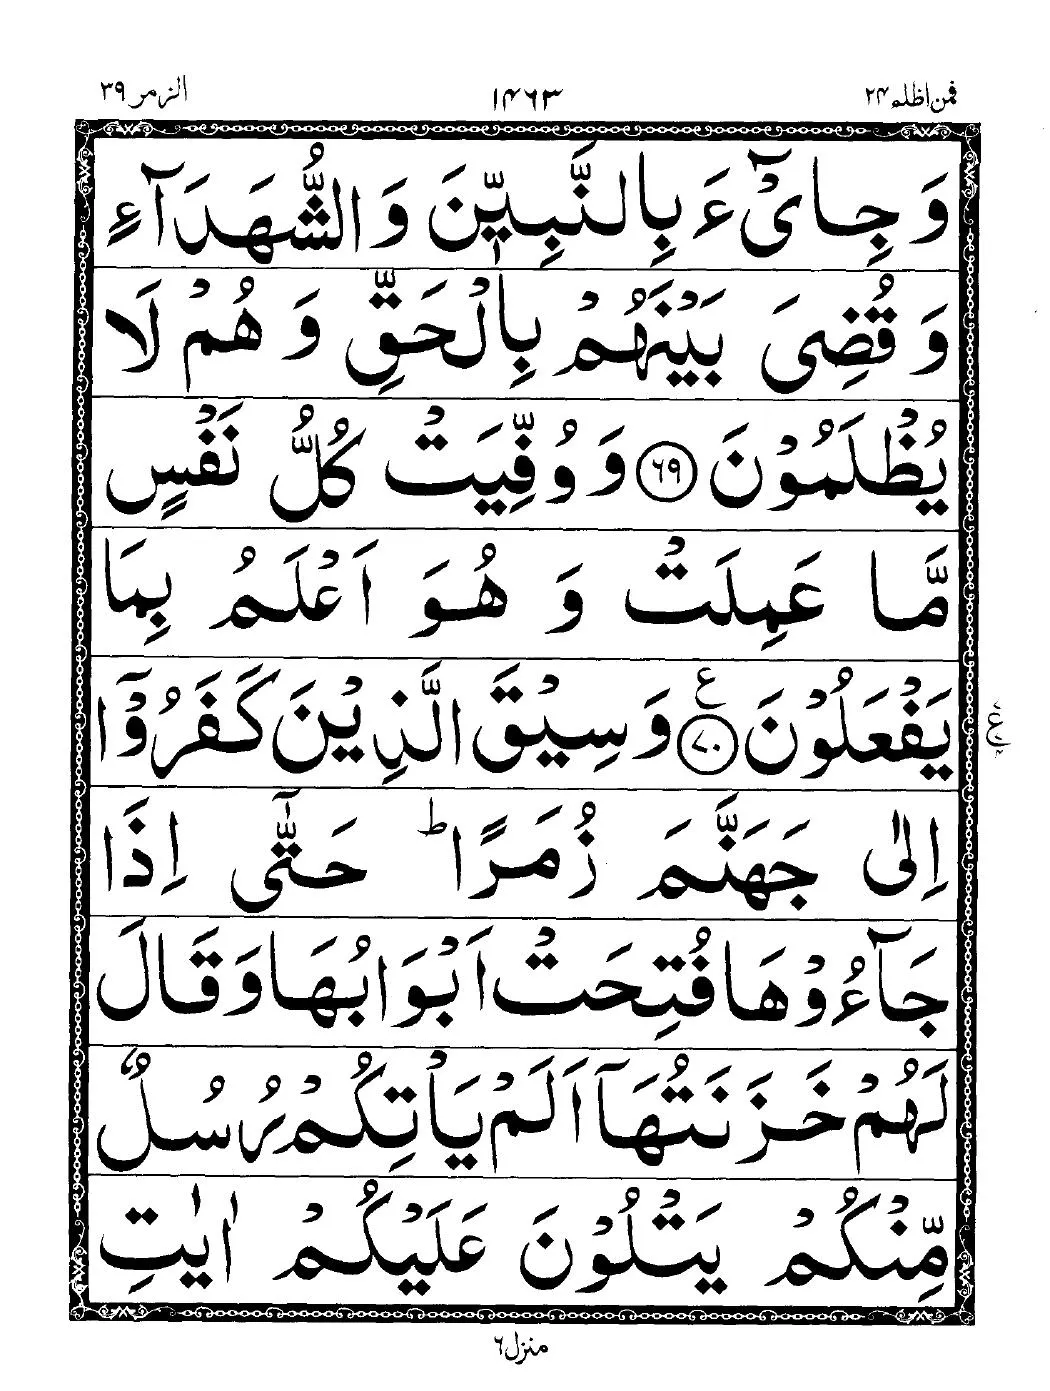 فمن اظلم ۲۴ ۱۴۶۳ الزمر ۳۹
وَ جِایْٓءَ بِالنَّبِیّٖنَ وَ الشُّهَدَآءِ
وَ قُضِیَ بَیْنَهُمْ بِالْحَقِّ وَ هُمْ لَا
یُظْلَمُوْنَ ۶۹ وَ وُفِّیَتْ كُلُّ نَفْسٍ
مَّا عَمِلَتْ وَ هُوَ اَعْلَمُ بِمَا
یَفْعَلُوْنَ ۷۰ ع وَ سِیْقَ الَّذِیْنَ كَفَرُوْۤا
اِلٰی جَهَنَّمَ زُمَرًا ؕ حَتّٰۤی اِذَا
جَآءُوْهَا فُتِحَتْ اَبْوَابُهَا وَ قَالَ
لَهُمْ خَزَنَتُهَاۤ اَلَمْ یَاْتِكُمْ رُسُلٌ
مِّنْكُمْ یَتْلُوْنَ عَلَیْكُمْ اٰیٰتِ
منزل ۶